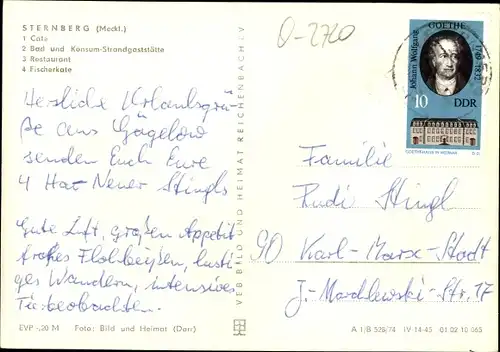 STERNBERG (Meckl.)
1 Café
2 Bad und Konsum-Strandgaststätte
3 Restaurant
4 Fischerkate
Herzliche Urlaubsgrü-
ße aus Gägelow
senden Euch Eure
4 Stingls
Gute Luft, großen Appetit
frohes Flohbeißen, lusti-
ges Wandern, intensives
Tierbeobachten.
EVP -,20 M Foto: Bild und Heimat (Darr)
VEB BILD UND HEIMAT REICHENBACH i. V
0-2720
GOETHE
Johann Wolfgang
1749-1832
10
DDR
GOETHEHAUS IN WEIMAR
Familie
Rudi Stingl
90 Karl-Marx-Stadt
J.-Marchlewski-Str. 17
A 1/B 526/74 IV-14-45 01 02 10 065